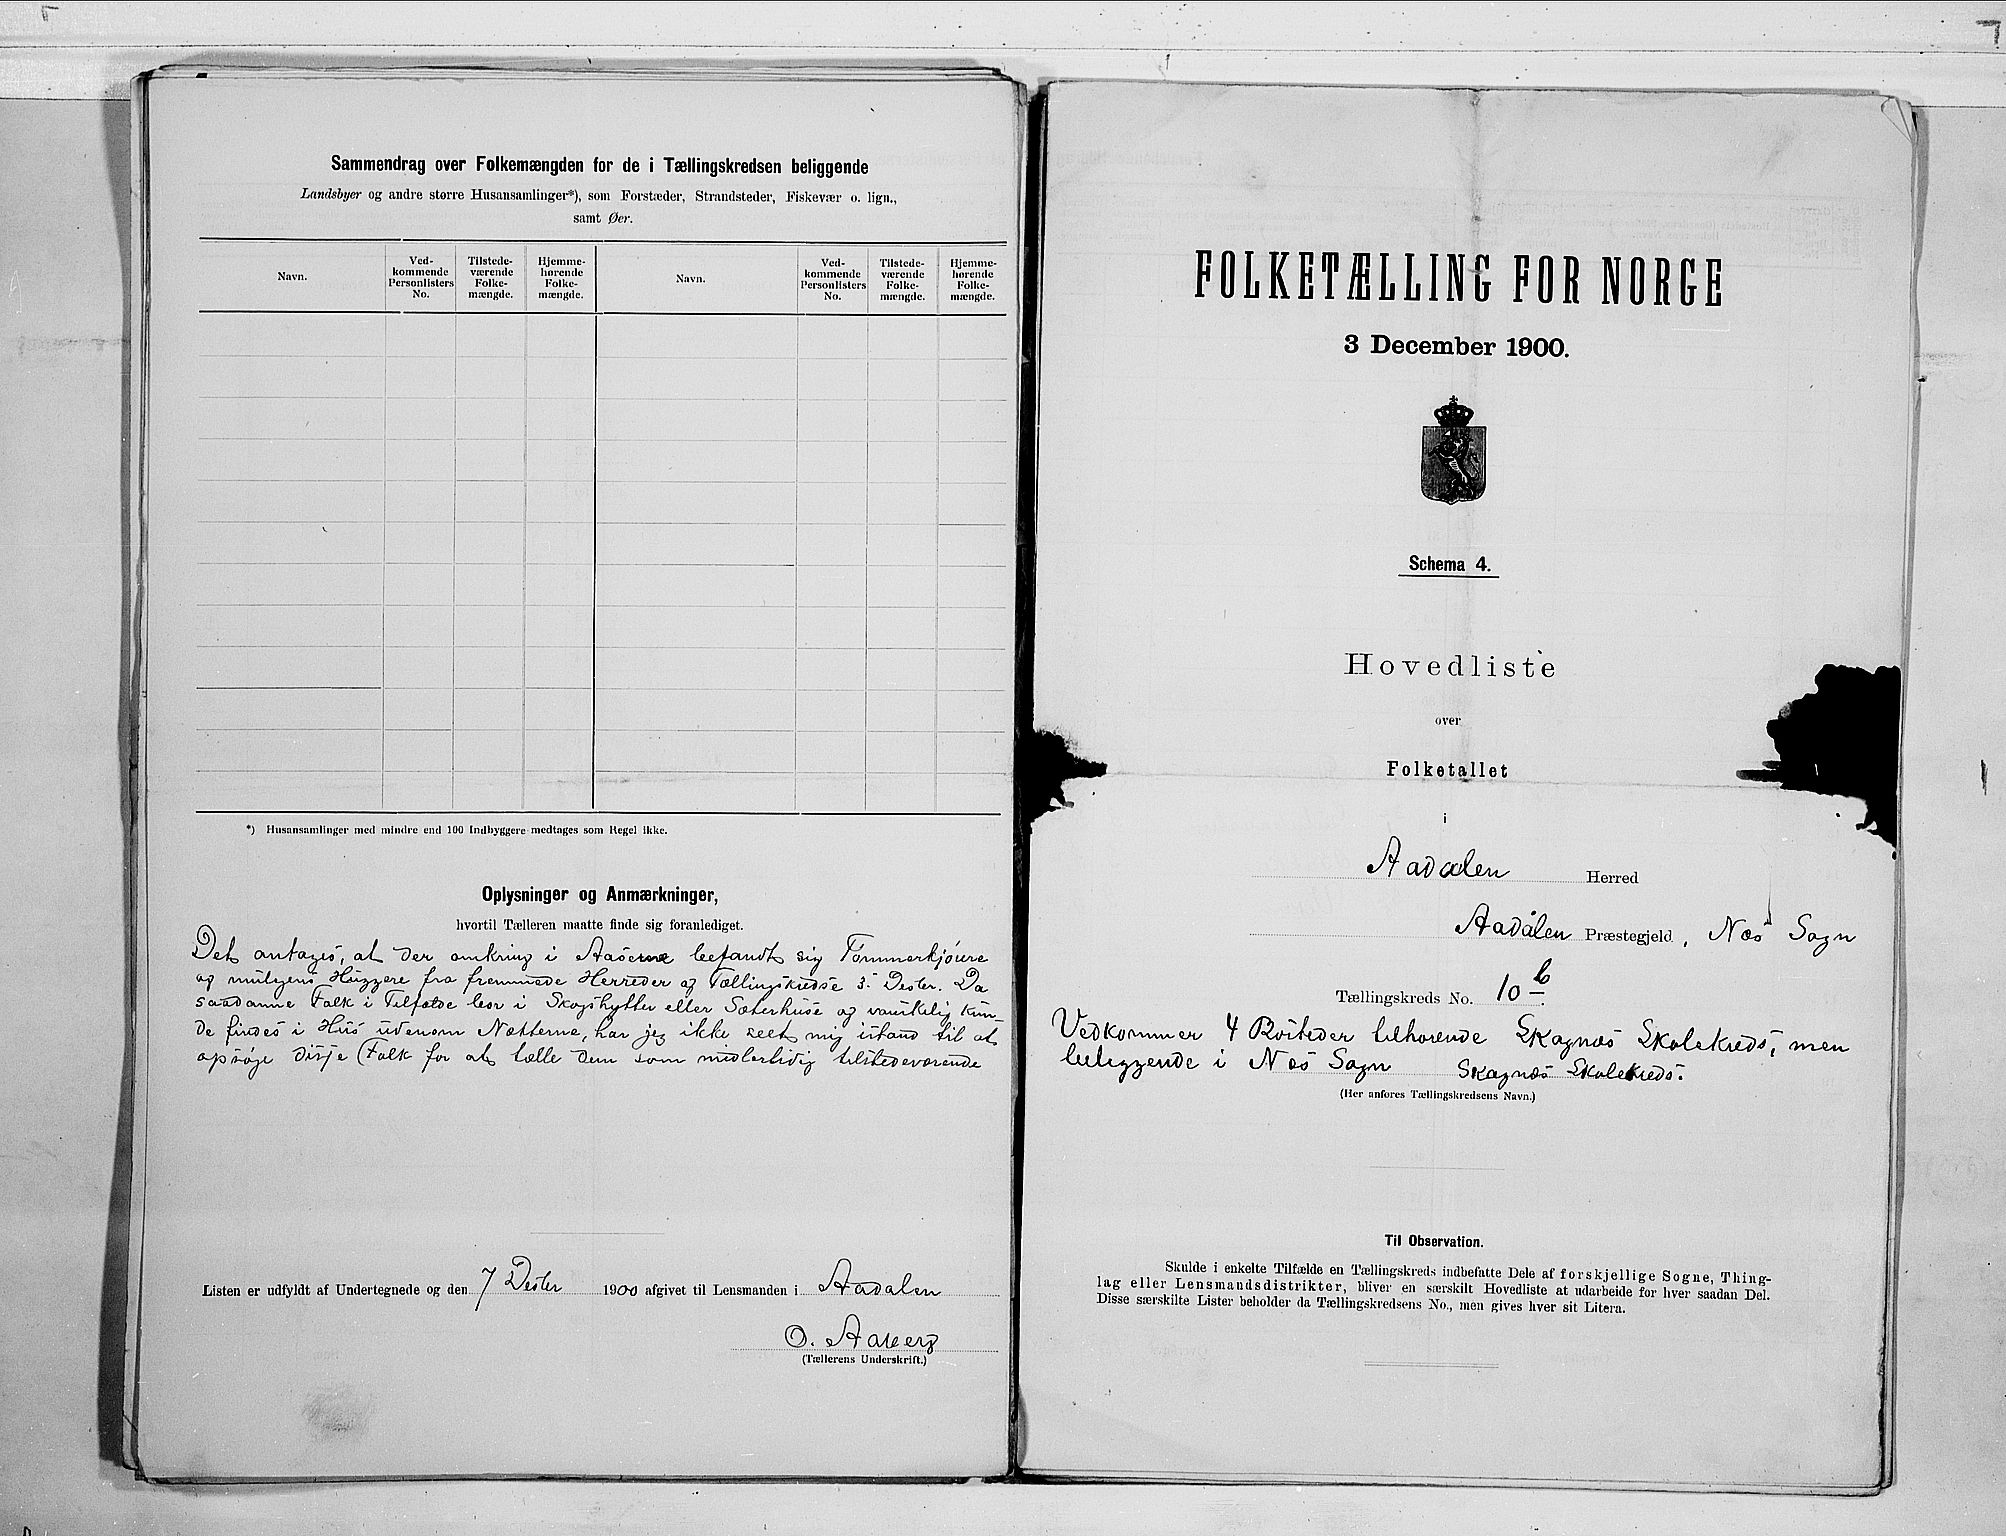 Sammendrag over Folkemængden for de i Tællingskredsen beliggende
Landsbyer og andre større Husansamlinger*), som Forstæder, Strandsteder, Fiskevær o. lign.,
samt Øer.
Navn.
Ved-
kommende
Personlisters
No.
Tilstede-
værende
Folke-
mængde.
Hjemme-
hørende
Folke-
mængde.
Navn.
Ved-
kommende
Personlisters
No.
Tilstede-
værende
Folke-
mængde.
Hjemme-
hørende
Folke-
mængde.
*) Husansamlinger med mindre end 100 Indbyggere medtages som Regel ikke.
Oplysninger og Anmærkninger,
hvortil Tælleren maatte finde sig foranlediget.
Det antages, at der omkring i Aaserne befandt sig Tømmerkjørere
og muligens Huggere fra fremmede Herreder og Tællingskredse 3. Dester. Da
saadanne Folk i Tilfælde bor i Skogshytter eller Sæterhuse og vanskelig kun-
de findes i Hus udenom Nætterne, har jeg ikke seet mig istand til at
opsøge disse Folk for at tælle dem som midlertidig tilstedeværende
Listen er udfyldt af Undertegnede og den 7 Dester 1900 afgivet til Lensmanden i Aadalen
O. Aaberg
(Tællerens Underskrift.)
FOLKETÆLLING FOR NORGE
3 December 1900.
Schema 4.
Hovedliste
over
Folketallet
i
Aadalen Herred
Aadalen Præstegjeld, Næs Sogn
Tællingskreds No. 10 b.
Vedkommer 4 Bosteder tilhørende Skagnæs Skolekreds, men
beliggende i Næs Sogn Skagnæs Skolekreds.
(Her anføres Tællingskredsens Navn.)
Til Observation.
Skulde i enkelte Tilfælde en Tællingskreds indbefatte Dele af forskjellige Sogne, Thing-
lag eller Lensmandsdistrikter, bliver en særskilt Hovedliste at udarbeide for hver saadan Del.
Disse særskilte Lister beholder da Tællingskredsens No., men gives hver sit Litera.